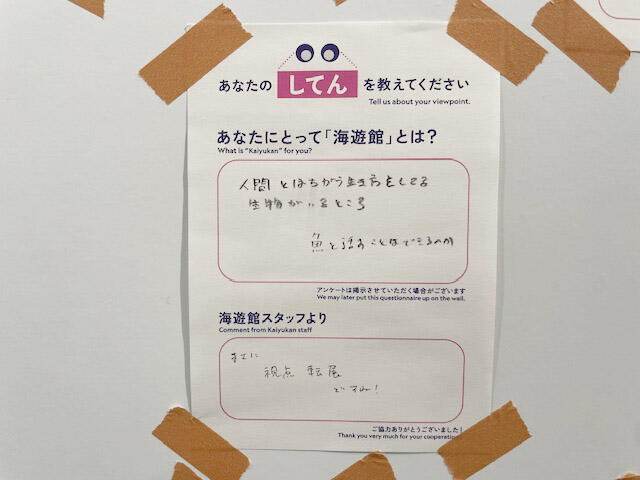 あなたの してん を教えてください
Tell us about your viewpoint.
あなたにとって「海遊館」とは?
What is "Kaiyukan" for you?
人間とはちがう生き方をしてる
生物がいるところ
魚と話すことはできるのか
アンケートは掲示させていただく場合がございます
We may later put this questionnaire up on the wall.
海遊館スタッフより
Comment from Kaiyukan staff
まさに
視点 転展
ですね!
ご協力ありがとうございました!
Thank you very much for your cooperation